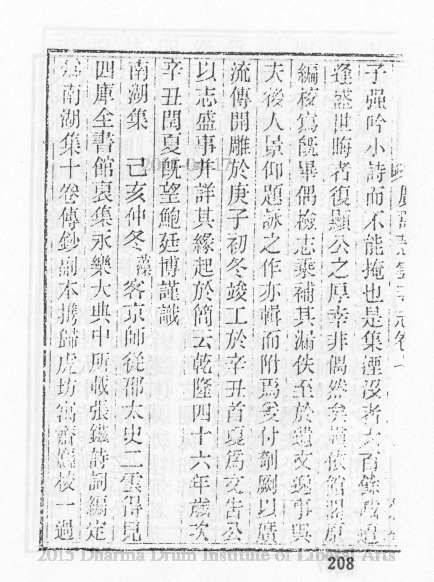 子强吟小詩而不能掩也是集湮沒者六百餘歲遭
逢盛世晦者復顯公之厚幸非偶然矣謹依館閣原
編校寫旣畢偶檢志乘補其漏佚至於遺文逸事與
夫後人景仰題詠之作亦輯而附焉爰付剞劂以廣
流傳開雕於庚子初冬竣工於辛丑首夏爲文告公
以志盛事幷詳其緣起於簡云乾隆四十六年歲次
辛丑閏夏旣望鮑廷博謹識
南湖集 己亥仲冬藻客京師從邵太史二雲得見
四庫全書館裒集永樂大典中所載張鎡詩詞編定
爲南湖集十卷傳鈔副本攜歸虎坊寓齋讎校一過
2015 Dharma Drum Institute of Liberal Arts
208